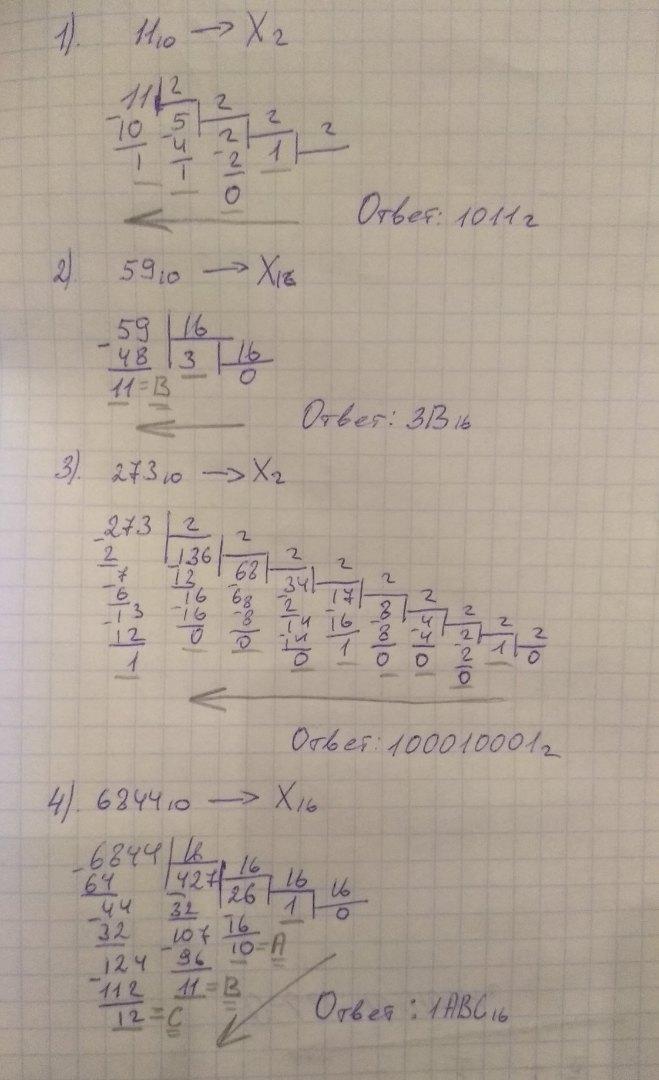 1). 11₁₀ → X₂
11 2
-10 5 2
1 -4 2 2
1 -2 1 2
0
Ответ: 1011₂
2) 59₁₀ → X₁₆
-59 16
48 3 16
11=B 0
Ответ: 3B₁₆
3). 273₁₀ → X₂
-273 2
2 -136 2
-7 12 -68 2
6 -16 68 -34 2
-13 16 -8 2 -17 2
12 0 8 -14 16 -8 2
1 0 14 1 8 -4 2
0 0 4 -2 2
0 2 1 2
0 0
Ответ: 100010001₂
4). 6844₁₀ → X₁₆
-6844 16
64 -427 16
-44 32 -26 16
32 -107 16 1 16
-124 96 10=A 0
112 11=B
12=C
Ответ: 1ABC₁₆